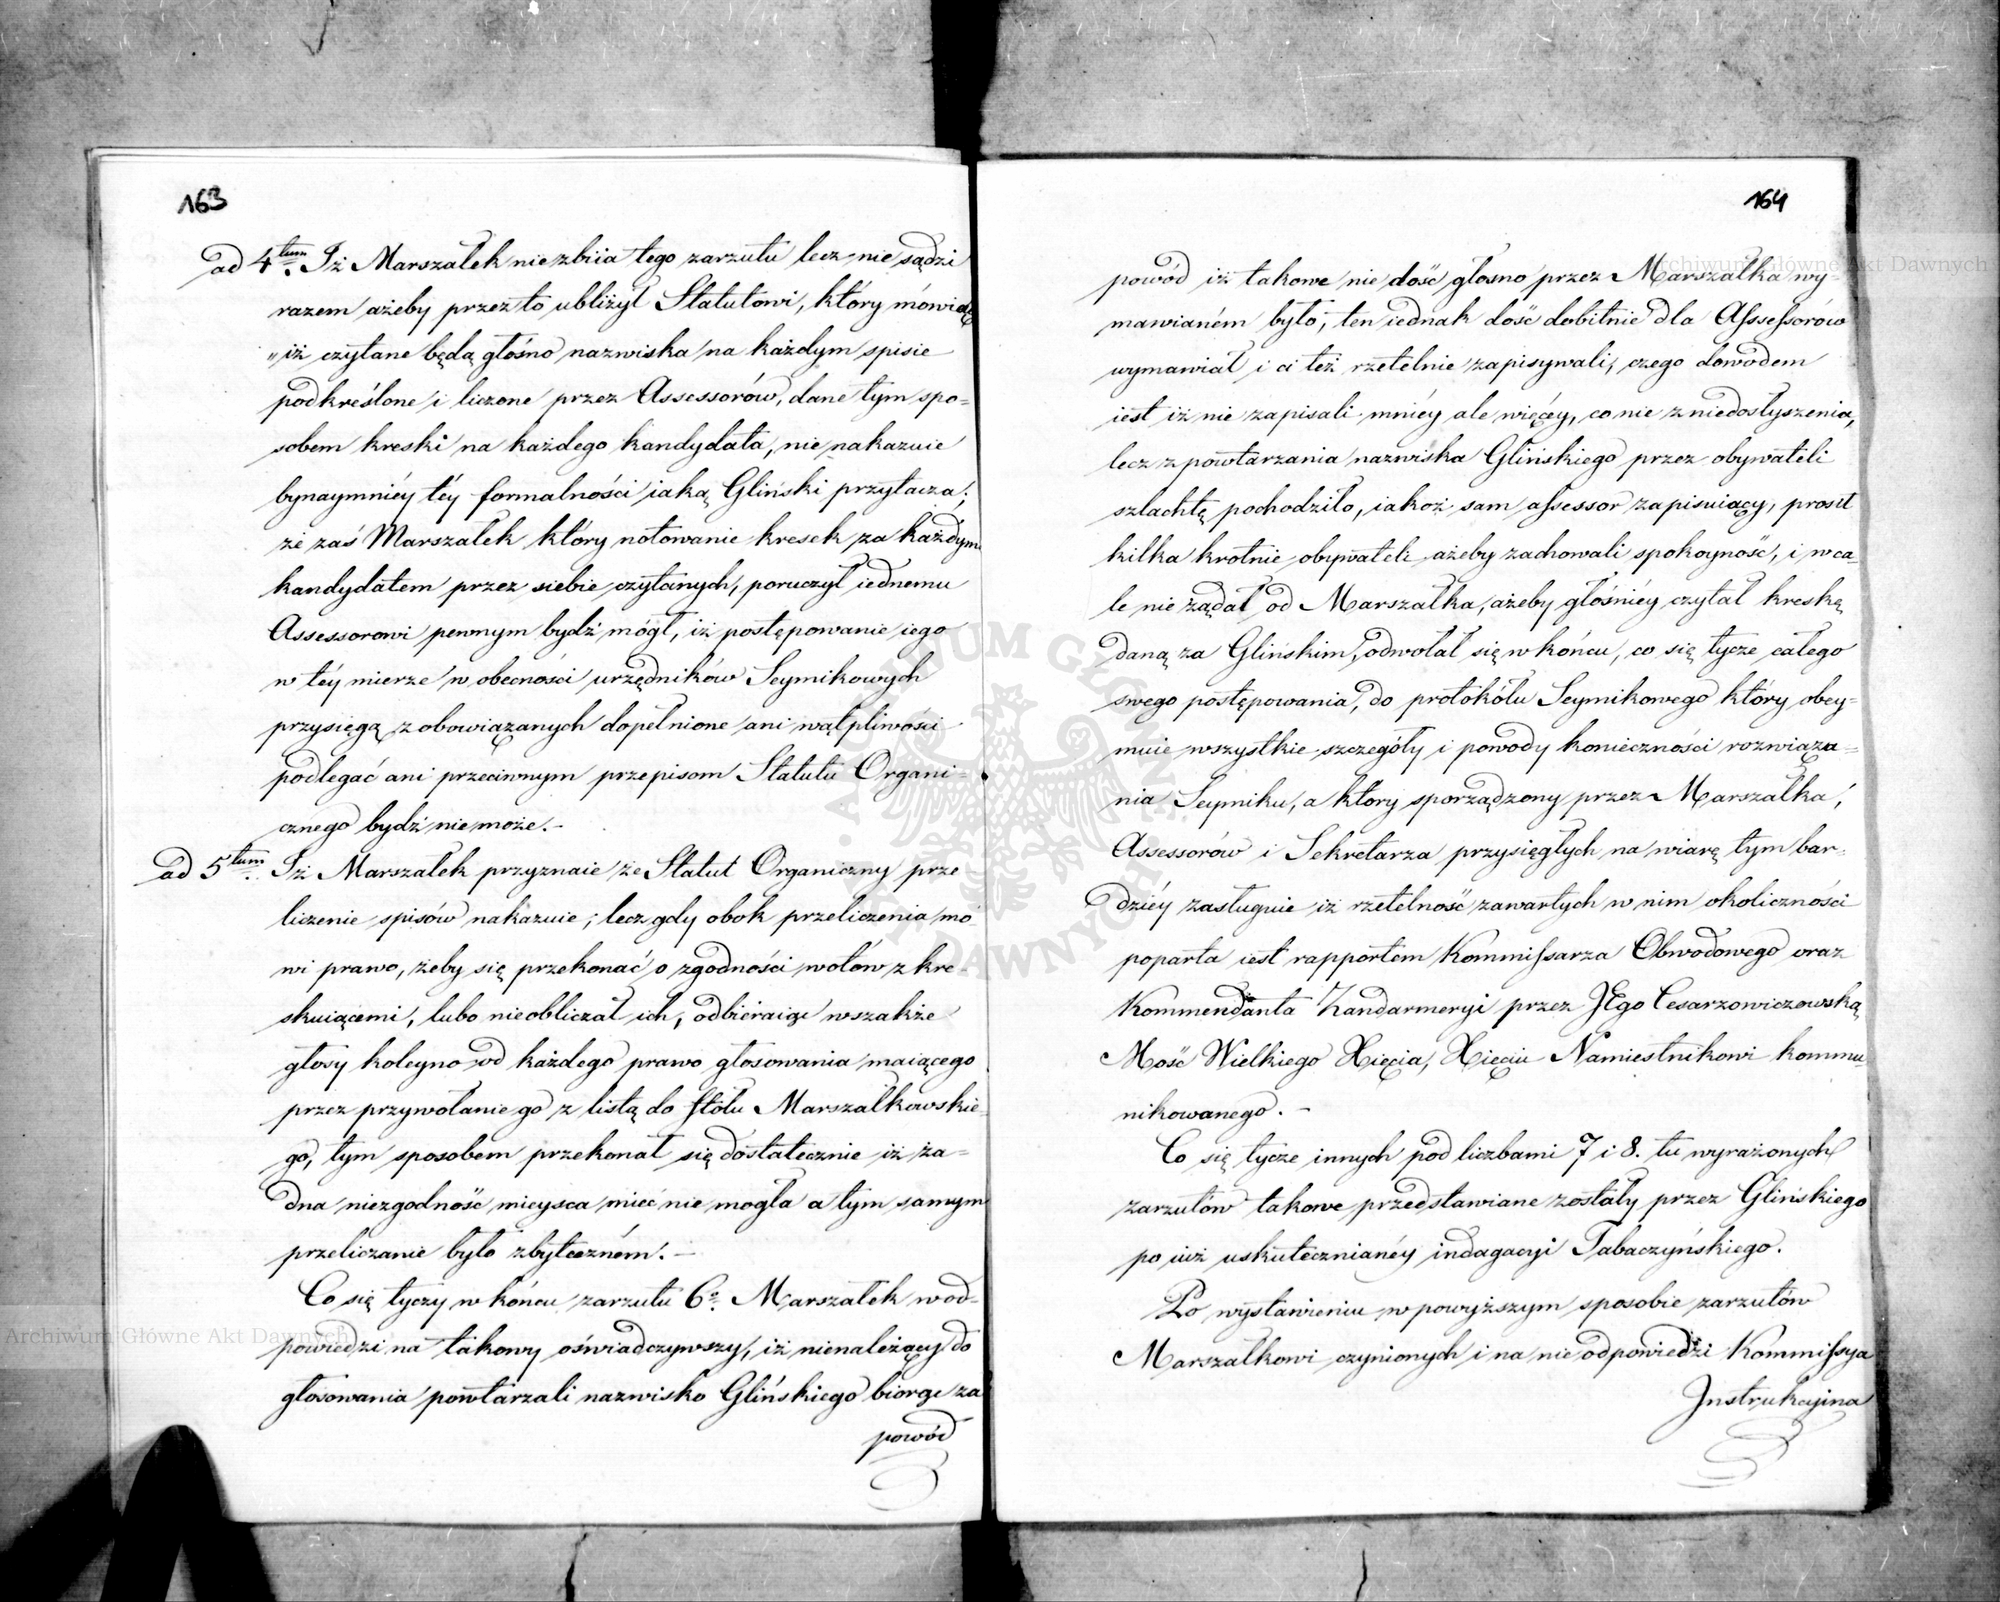 163
ad 4tum. Iż Marszałek niezbiia tego zarzutu lecz nie sądzi
razem ażeby przez to ubliżył Statutowi, który mówiąc
„iż czytane będą głośno nazwiska na każdym spisie
podkreślone i liczone przez Assessorów, dane tym spo=
sobem kreski na każdego kandydata, nie nakazuie
bynaymniéy téy formalności iaką Gliński przytacza;
że zaś Marszałek który notowanie kresek za każdym
kandydatem przez siebie czytanych, poruczył iednemu
Assessorowi pewnym bydź mógł, iż postępowanie iego
w téy mierze w obecności urzędników Seymikowych
przysięgą zobowiązanych dopełnione ani wątpliwości
podlegać ani przeciwnym przepisom Statutu Organi=
cznego bydź nie może.–
ad 5tum. Iż Marszałek przyznaie że Statut Organiczny prze=
liczenie spisów nakazuie; lecz gdy obok przeliczenia mó
wi prawo, żeby się przekonać o zgodności wotów z kre=
skuiącemi, lubo nieobliczał ich, odbieraiąc wszakże
głosy koleyno od każdego prawo głosowania maiącego
przez przywołanie go z listą do stołu Marszałkowskie
go, tym sposobem przekonał się dostatecznie iż ża=
dna niezgodność mieysca mieć nie mogła a tym samym
przeliczanie było zbyteczném. –
Co się tyczy w końcu zarzutu 6º. Marszałek w od=
powiedzi na takowy oświadczywszy, iż nienależący do
głosowania powtarzali nazwisko Glińskiego biorąc za
powód
164
powód iż takowe nie dość głosno przez Marszałka wy=
mawianém było, ten iednak dość dobitnie dla Assessorów
wymawiał i ci też rzetelnie zapisywali, czego dowodem
iest iż nie zapisali mniéy ale więcéy, co nie z niedosłyszenia,
lecz z powtarzania nazwiska Glińskiego przez obywateli
szlachtę pochodziło, iakoż sam assessor zapisuiący, prosił
kilka krotnie obywateli ażeby zachowali spokoyność, i wca=
le nie żądał od Marszałka, ażeby głośniéy czytał kreskę
daną za Glińskim, odwołał się w końcu, co się tycze całego
swego postępowania, do protokółu Seymikowego który obey=
muie wszystkie szczegóły i powody konieczności rozwiąza=
nia Seymiku, a który sporządzony przez Marszałka,
Assessorów i Sekretarza przysięgłych na wiarę tym bar=
dziéy zasługuie iż rzetelność zawartych w nim okoliczności
poparta iest rapportem Kommissarza Obwodowego oraz
Kommendanta Żandarmeryi przez JEgo Cesarzowiczowską
Mość Wielkiego Xięcia, Xięciu Namiestnikowi kommu=
nikowanego. –
Co się tycze innych pod liczbami 7 i 8. tu wyrażonych
zarzutów takowe przedstawiane zostały przez Glińskiego
po iuż uskutecznianéy indagacyi Tabaczyńskiego.
Po wystawieniu w powyższym sposobie zarzutów
Marszałkowi czynionych i na nie odpowiedzi Kommissya
Instrukcyina
Archiwum Główne Akt Dawnych
Archiwum Główne Akt Dawnych
ARCHIWUM GŁÓWNE AKT DAWNYCH